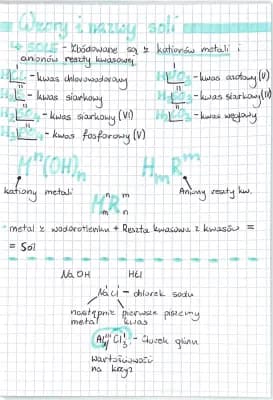 Wzory i nazwy soli
↳ SOLE - Zbudowane są z kationów metali i
anionów reszty kwasowej
HCl - kwas chlorowodorowy
- kwas siarkowy
- kwas siarkowy (VI)
- kwas fosforowy (V)
HNO₃ - kwas azotowy (V)
- kwas siarkowy (IV)
- kwas węglowy
Mⁿ(OH)ₙ HₘRᵐ
kationy metali
Aniony reszty kw.
MR
metal z wodorotlenku + Reszta kwasowa z kwasów =
= Sól
NaOH HCl
NaCl - chlorek sodu
następnie pierwsze piszemy
metal kwas
Al Cl₃ - Chlorek glinu
wartościowość
na krzyż